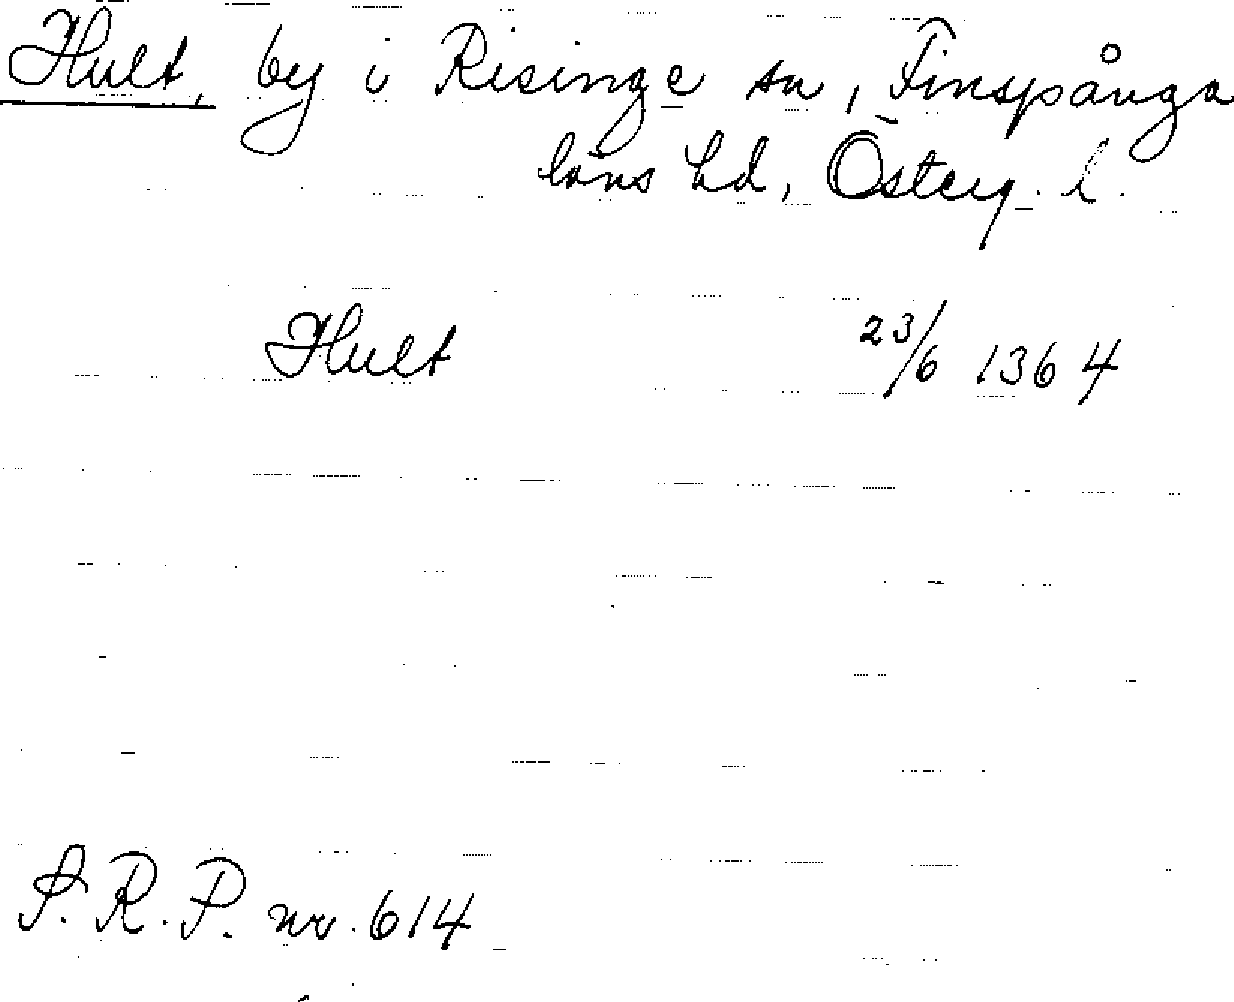 Hult, by i Risinge sn, Finspånga
läns hd, Österg. l.
Hult 23/6 1364
S.R.P. nr. 614